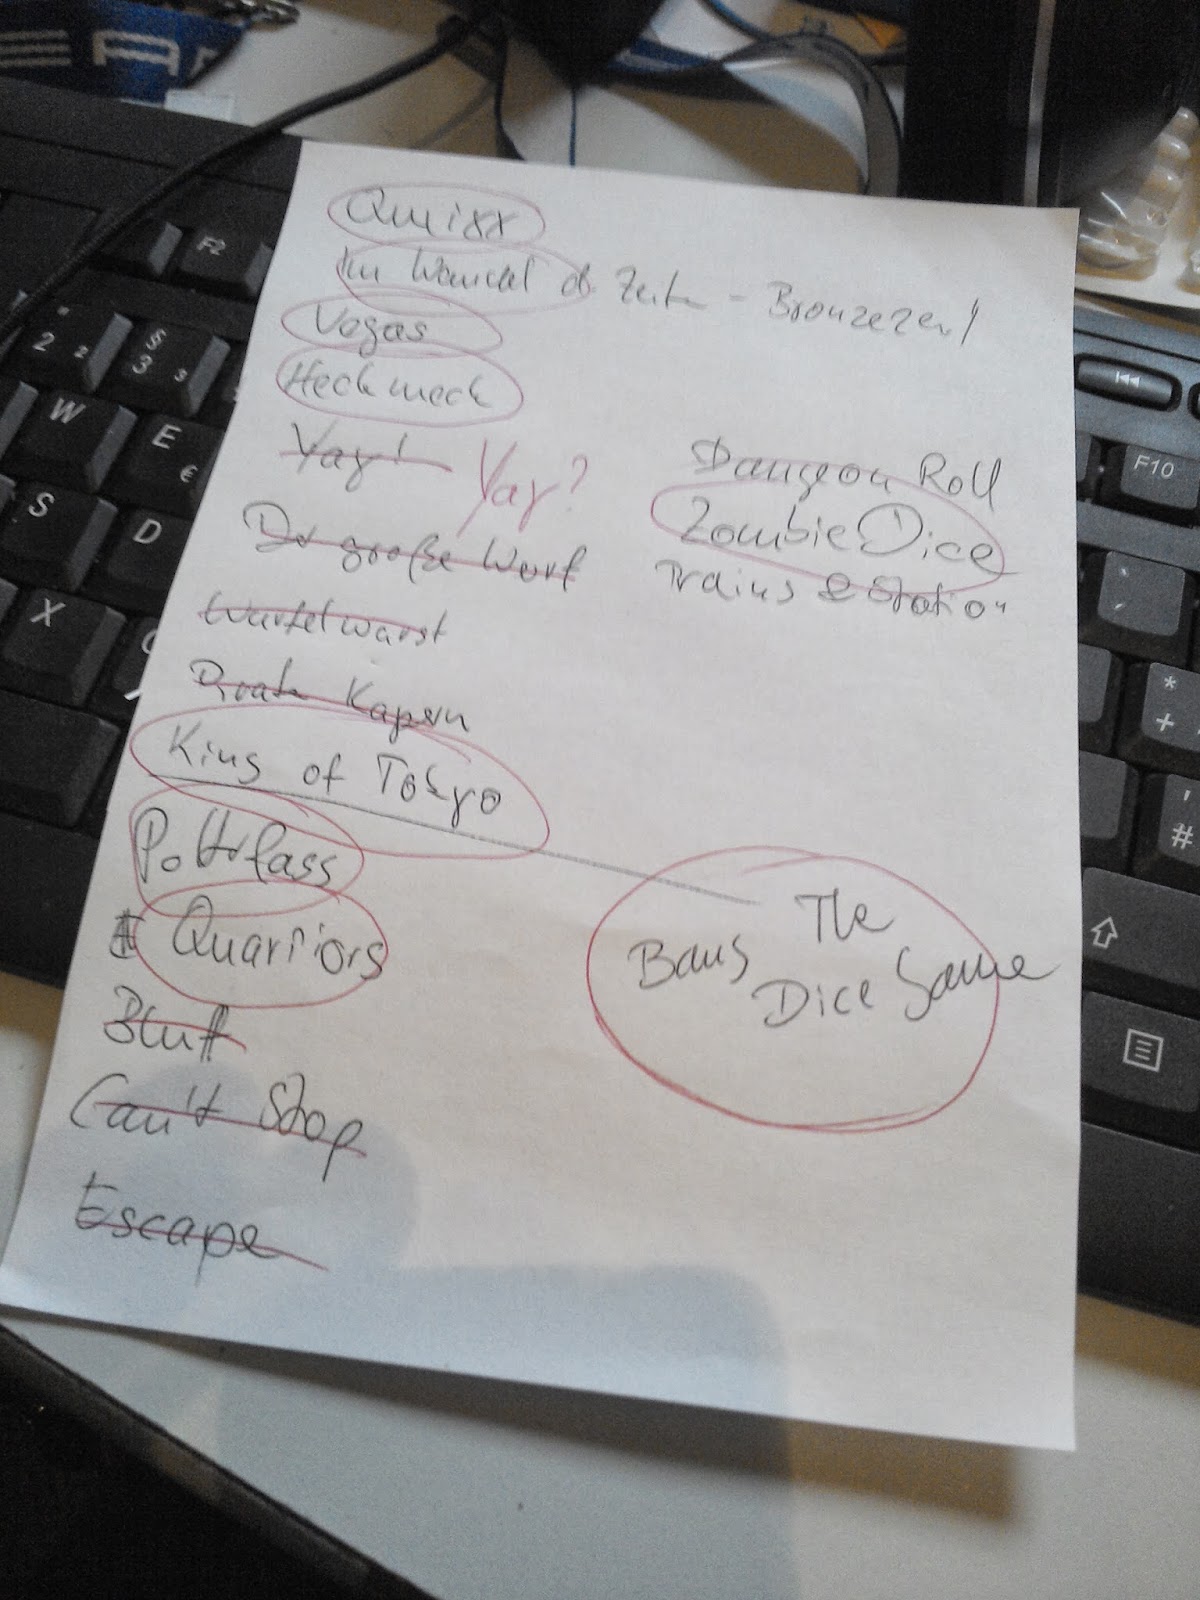 Qwixx
Im Wandel d. Zeiten - Bronzezeit
Vegas
Heckmeck
Yay! Yay?
Der große Wurf
Würfelwurst
Piraten Kapern
King of Tokyo
Pottfass
Quarriors
Bluff
Can't Stop
Escape
Dungeon Roll
Zombie Dice
Trains & Station
Bang The
Dice Game
F2
" 2 2
§ 3 3
W
E €
S
D
X
F10
* +
' #